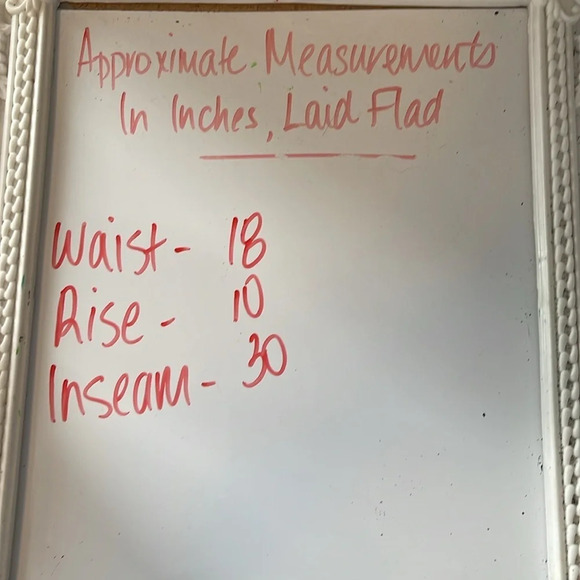 Approximate Measurements
In Inches, Laid Flad
Waist - 18
Rise - 10
Inseam - 30